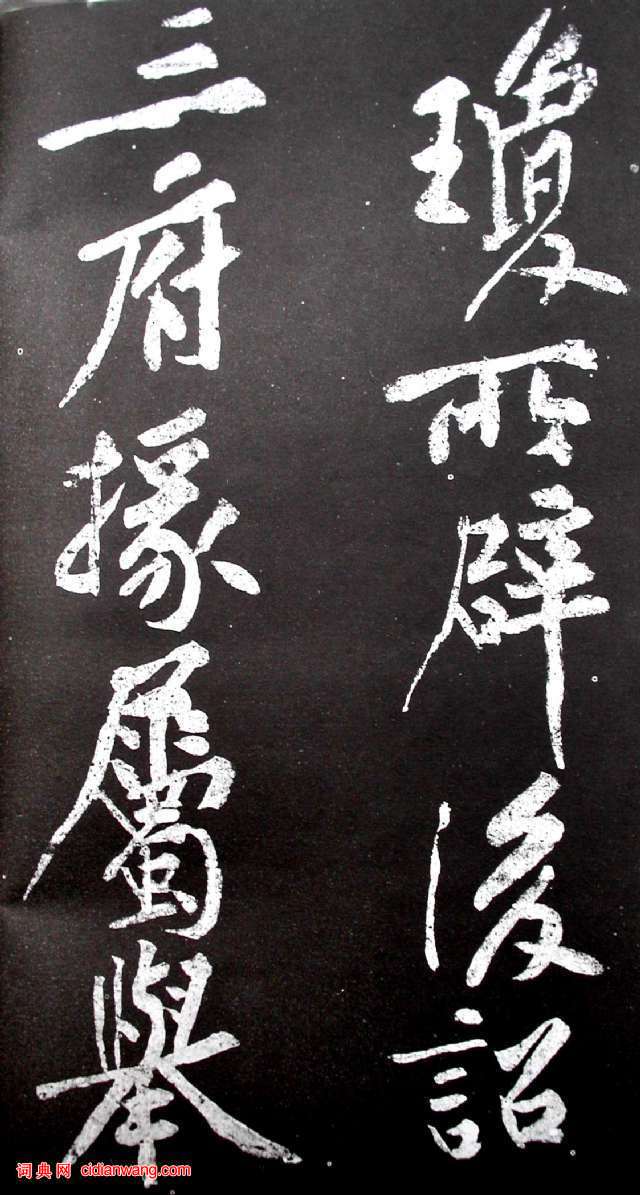 瓊所辟後詔
三府掾屬舉
词典网 cidianwang.com